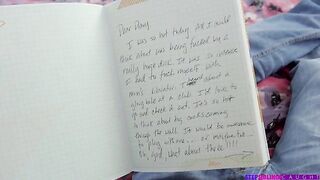 Dear Diary,
I was so hot today. All I could
think about was being fucked by a
really huge dick. It was so intense
I had to fuck myself with
mom's vibrator. I heard about a
glory hole at a club. I'd love to
go and check it out. It's so hot
to think about big cocks coming
through the wall. It would be
to play with one... or maybe two...
Oh, God, what about three!!!!
STEPSIBLINGSCAUGHT